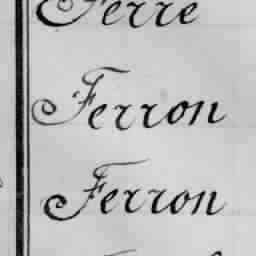 Ferre
Ferron
Ferron